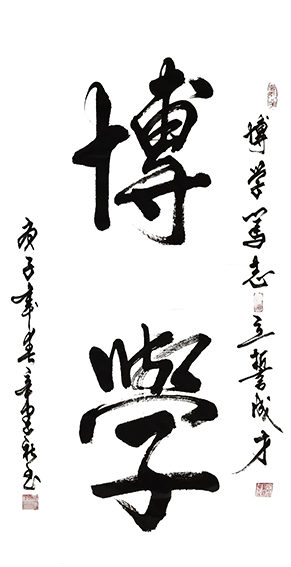 博學篤志立誓成才
博學
庚子年春